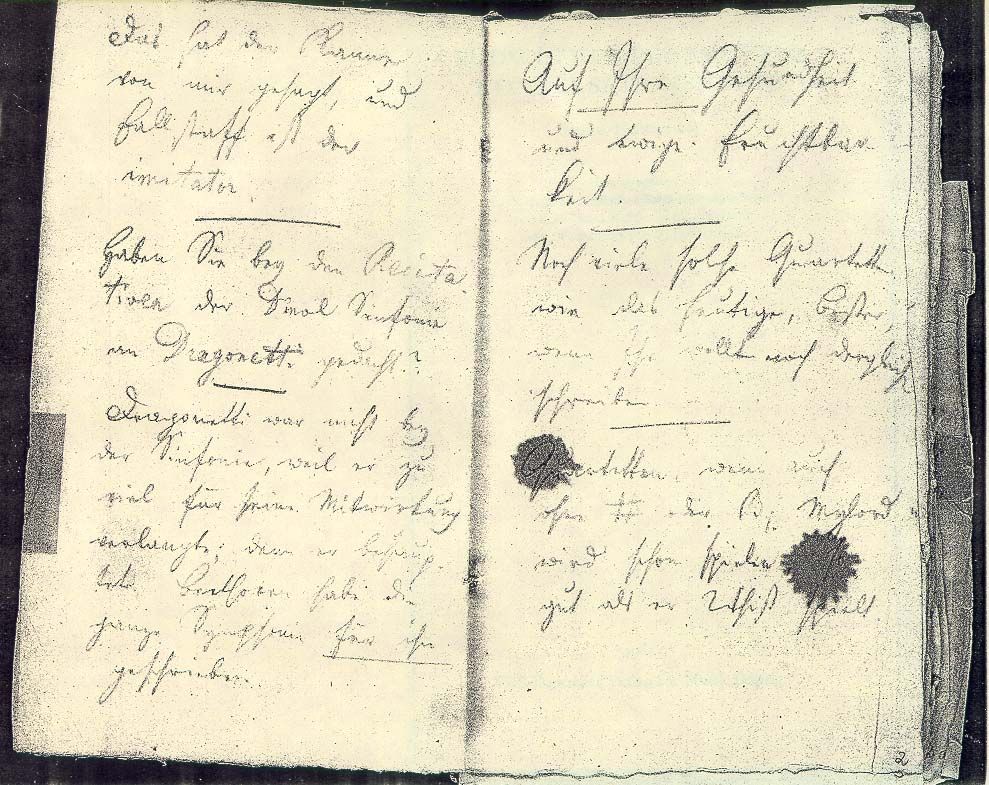 Das hat der Kanne
von mir gesagt, und
Fallstaff ist der
imitator
Haben Sie bey den Recita
tiven der Dmol Sinfonie
an Dragonetti gedacht?
Dragonetti war nicht bey
der Sinfonie, weil er zu
viel für seine Mitwirkung
verlangte; denn er behaup
tete Beethoven habe die
ganze Symphonie für ihn
geschrieben.
Auf Ihre Gesundheit
und ewige Fruchtbar
keit.
Noch viele solche Quartette
wie das heutige, Bester,
wenn Ihr wollt noch dergleichen
schreiben
Quartetten, wenn auch
ohne # oder B; Mylord
wird schon spielen
gut als er Whist spielt
2